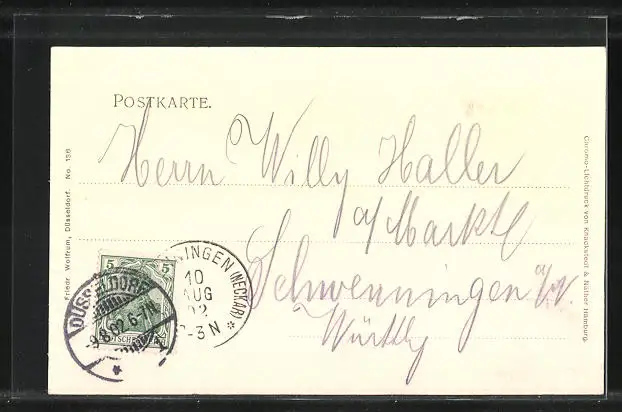 POSTKARTE.
Herrn Willy Haller
a/Markt
Schwenningen a/N.
Württbg
Friedr. Wolfrum, Düsseldorf. No. 136
Chromo-Lichtdruck von Knackstedt & Näther Hamburg.
5 5
DÜSSELDORF
-9.8.02.6-7N.
NINGEN (NECKAR)
10
AUG
02
2-3 N